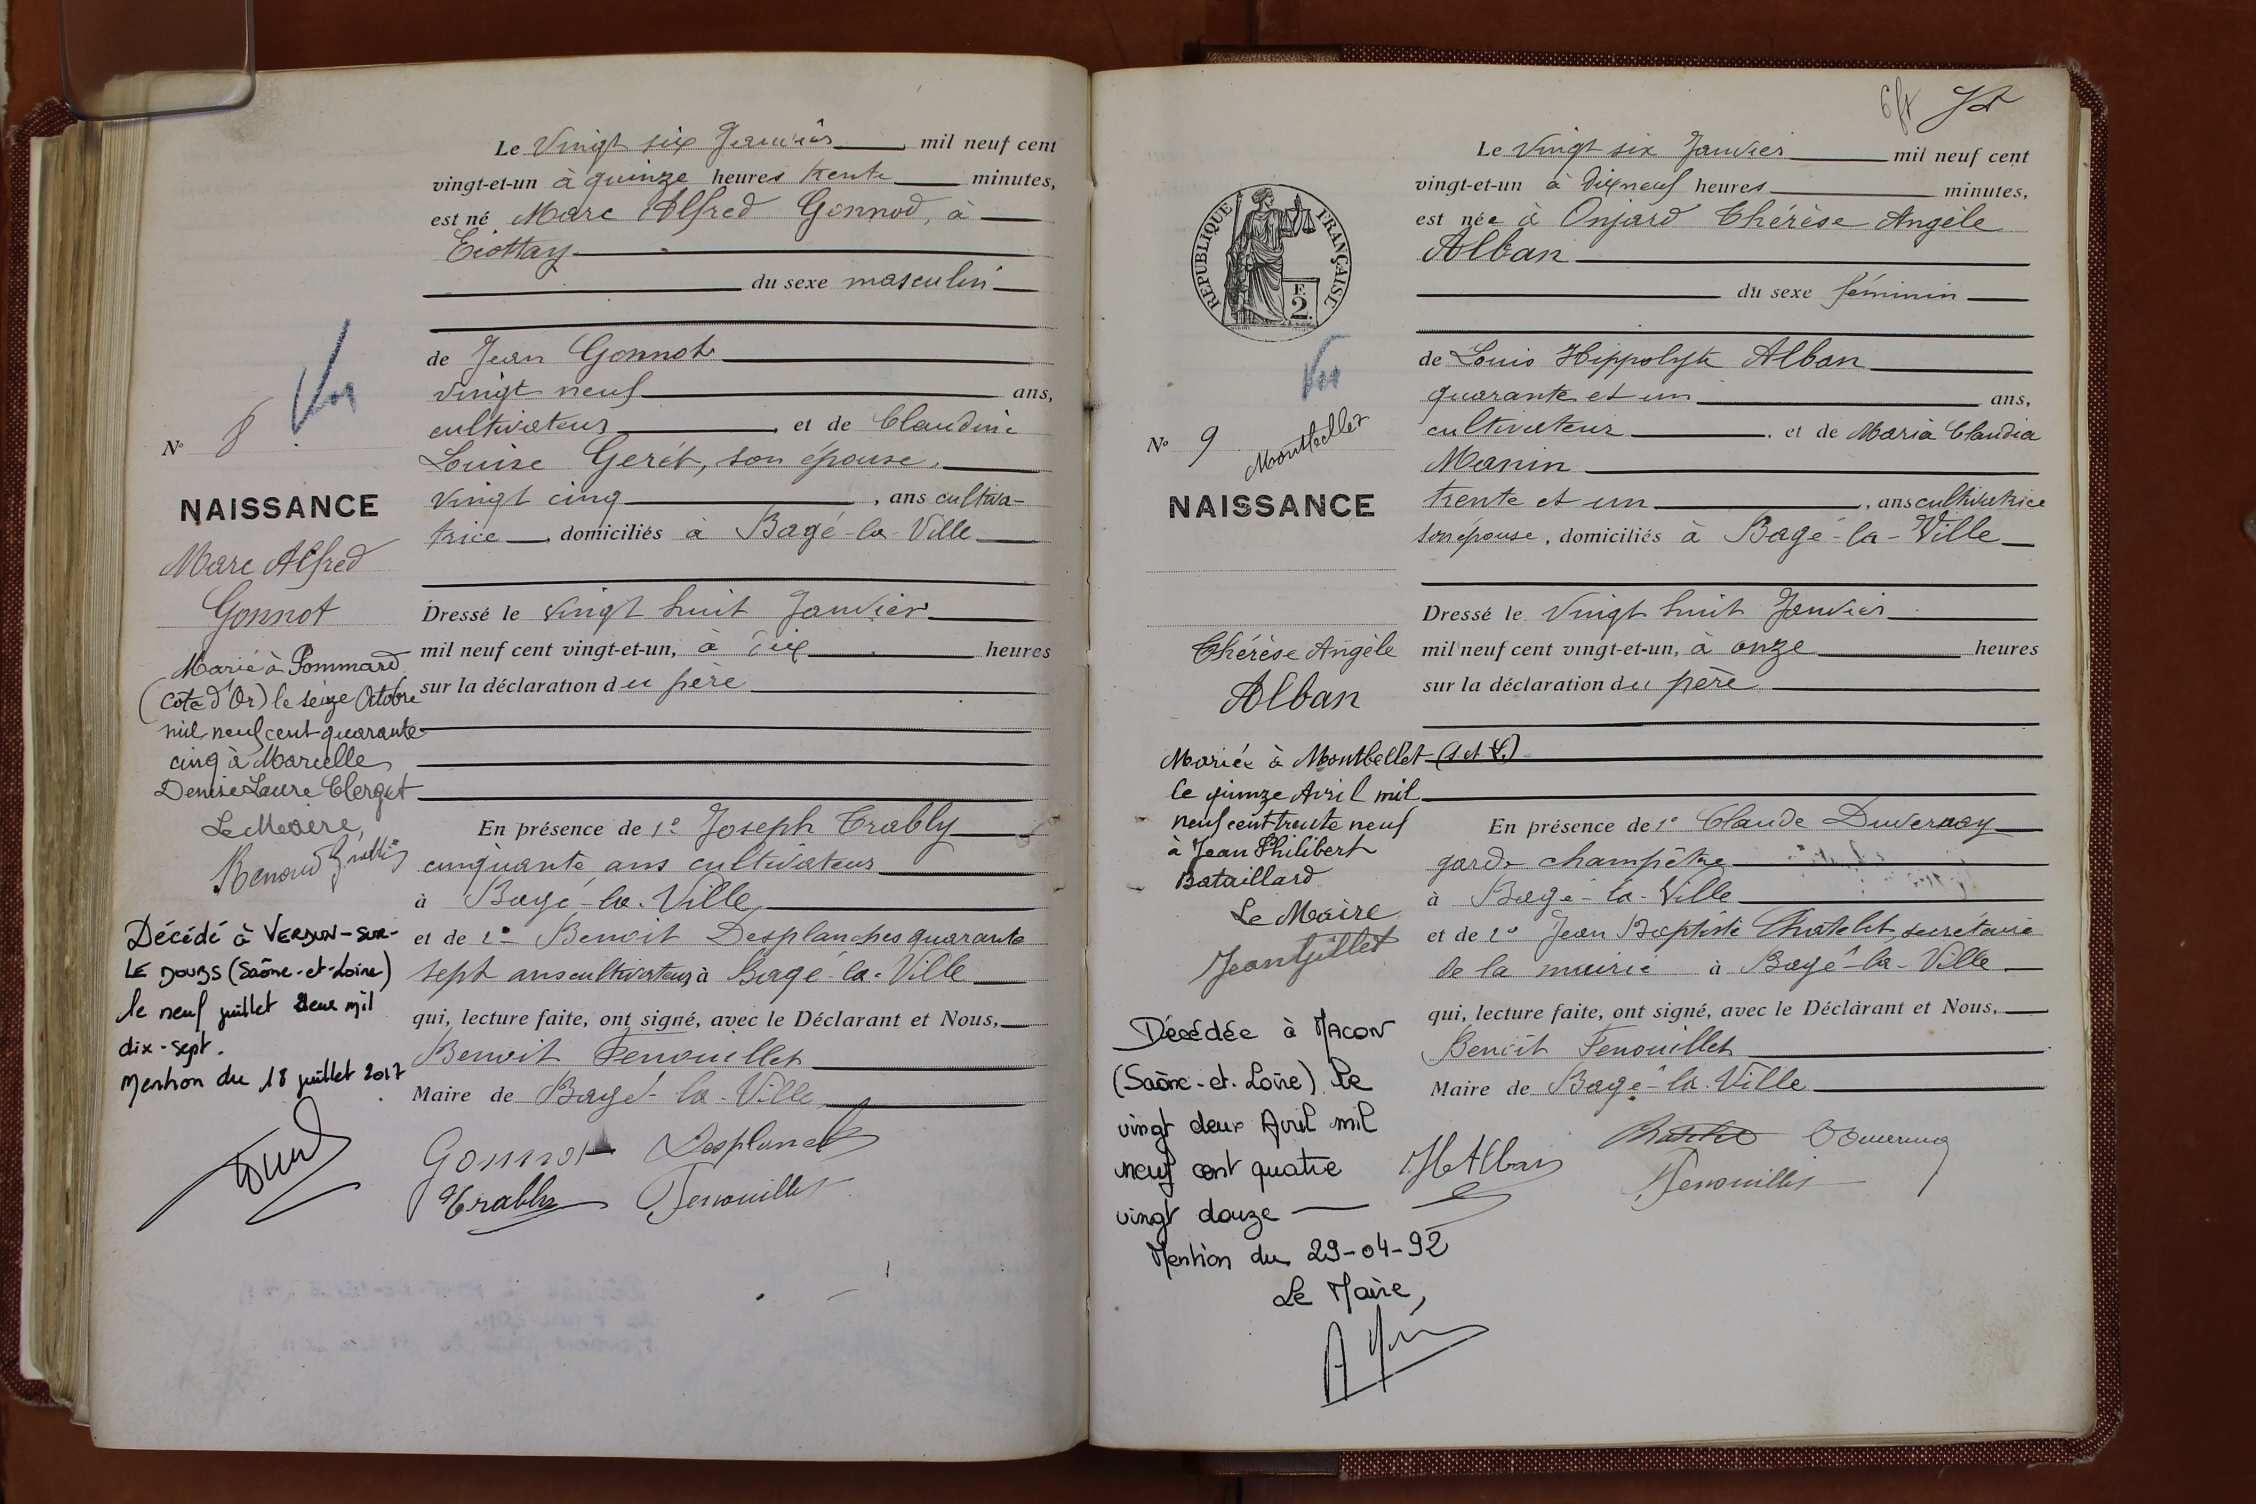 Le Vingt six Janvier mil neuf cent
vingt-et-un à quinze heures trente minutes,
est né Marc Alfred Gonnod, à
du sexe masculin
de Jean Gonnot
vingt neuf ans,
cultivateur et de Claudine
Louise Gerét, son épouse,
vingt cinq, ans cultiva-
trice, domiciliés à Bagé-la-Ville
Dressé le vingt huit Janvier
mil neuf cent vingt-et-un, à dix heures
sur la déclaration du père
En présence de 1° Joseph Trably
cinquante ans cultivateur
à Bagé-la-Ville
et de 2° Benoit Desplanches quarante
sept ans cultivateur à Bagé-la-Ville
qui, lecture faite, ont signé, avec le Déclarant et Nous,
Benoit Fenouillet
Maire de Bagé-la-Ville
Gonnot Desplanche
Trably Fenouillet
Vu
N° 8
NAISSANCE
Marc Alfred
Gonnot
Marié à Pommard
(Cote d'Or) le seize Octobre
mil neuf cent quarante
cinq à Marcelle
Denise Laure Clerget
Le Maire,
Décédé à VERDUN-SUR-
LE DOUBS (Saône-et-Loire)
le neuf juillet deux mil
dix-sept.
Mention du 18 juillet 2017
REPUBLIQUE FRANÇAISE
F.
2.
Vu
N° 9
Montbellet
NAISSANCE
Thérèse Angèle
Alban
Mariée à Montbellet (S et L)
le quinze Avril mil
neuf cent trente neuf
à Jean Philibert
Bataillard
Le Maire
Décédée à MACON
(Saône-et-Loire) le
vingt deux Avril mil
neuf cent quatre
vingt douze
Mention du 29-04-92
Le Maire,
Le Vingt six Janvier mil neuf cent
vingt-et-un à dix neuf heures minutes,
est née à Onjard Thérèse Angèle
Alban
du sexe féminin
de Louis Hippolyte Alban
quarante et un ans,
cultivateur et de Maria Claudia
Manin
trente et un, ans cultivatrice
son épouse, domiciliés à Bagé-la-Ville
Dressé le Vingt huit Janvier
mil neuf cent vingt-et-un, à onze heures
sur la déclaration du père
En présence de 1° Claude Duvernay
garde champêtre
à Bagé-la-Ville
et de 2° Jean Baptiste Chatelet secrétaire
de la mairie à Bagé-la-Ville
qui, lecture faite, ont signé, avec le Déclarant et Nous,
Benoit Fenouillet
Maire de Bagé-la-Ville
HAlban
Fenouillet